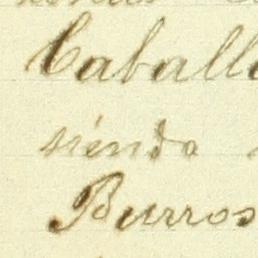 Caball
siendo
Burros